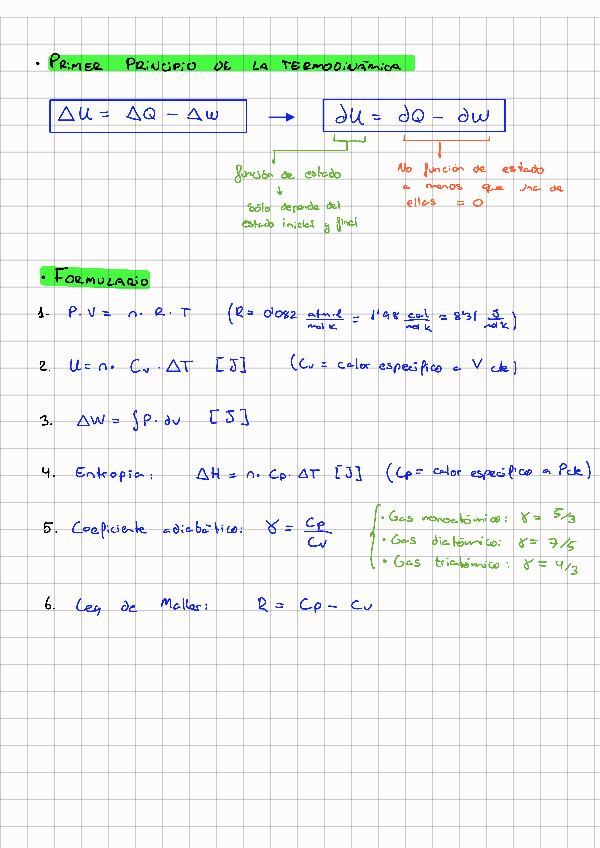 · PRIMER PRINCIPIO DE LA TERMODINÁMICA
ΔU = ΔQ - ΔW → ∂U = ∂Q - ∂W
función de estado
↓
sólo depende del
estado inicial y final
No función de estado
a menos que una de
ellas = 0
· FORMULARIO
1- P·V = n·R·T (R = 0'082 atm·l/mol K = 1'98 cal/mol K = 8'31 J/mol K)
2. U = n· Cv · ΔT [J] (Cv = calor específico a V cte)
3. ΔW = ∫P·dv [J]
4. Entropia: ΔH = n· Cp· ΔT [J] (Cp = calor específico a P cte)
5. Coeficiente adiabático: γ = Cp/Cv
· Gas monoatómico: γ = 5/3
· Gas diatómico: γ = 7/5
· Gas triatómico: γ = 4/3
6. Ley de Maller: R = Cp - Cv